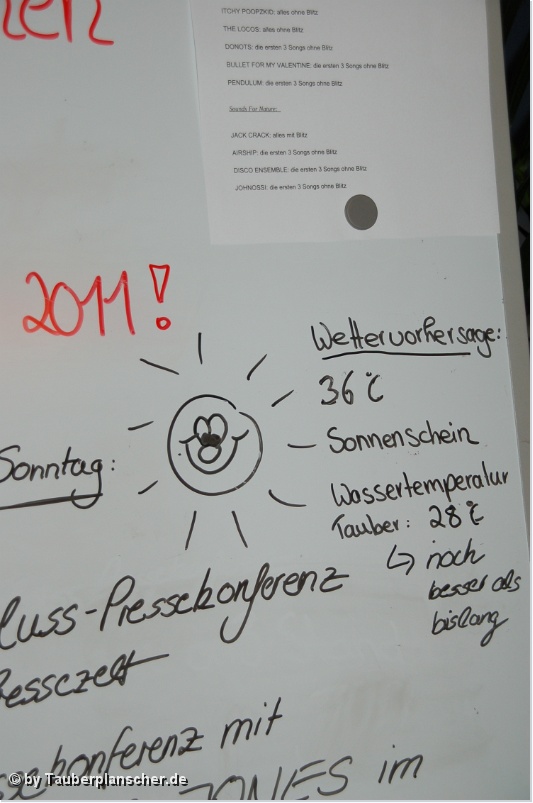 ITCHY POOPZKID: alles ohne Blitz
THE LOCOS: alles ohne Blitz
DONOTS: die ersten 3 Songs ohne Blitz
BULLET FOR MY VALENTINE: die ersten 3 Songs ohne Blitz
PENDULUM: die ersten 3 Songs ohne Blitz
Sounds For Nature:
JACK CRACK: alles mit Blitz
AIRSHIP: die ersten 3 Songs ohne Blitz
DISCO ENSEMBLE: die ersten 3 Songs ohne Blitz
JOHNOSSI: die ersten 3 Songs ohne Blitz
2011!
Wettervorhersage:
36°C
Sonnenschein
Sonntag:
Wassertemperatur
Tauber: 28°C
↳ noch
besser als
bislang
luss-Pressekonferenz
essezelt
sekonferenz mit
JONES im
© by Tauberplanscher.de